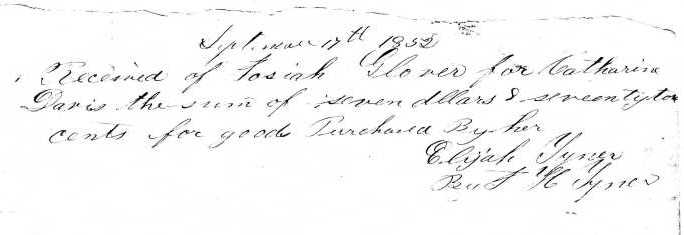 September 17th 1852
Received of Josiah Glover for Catharine
Davis the sum of seven dllars & seventy two
cents for goods Purchased By her
Elijah Tyner
H Tyner